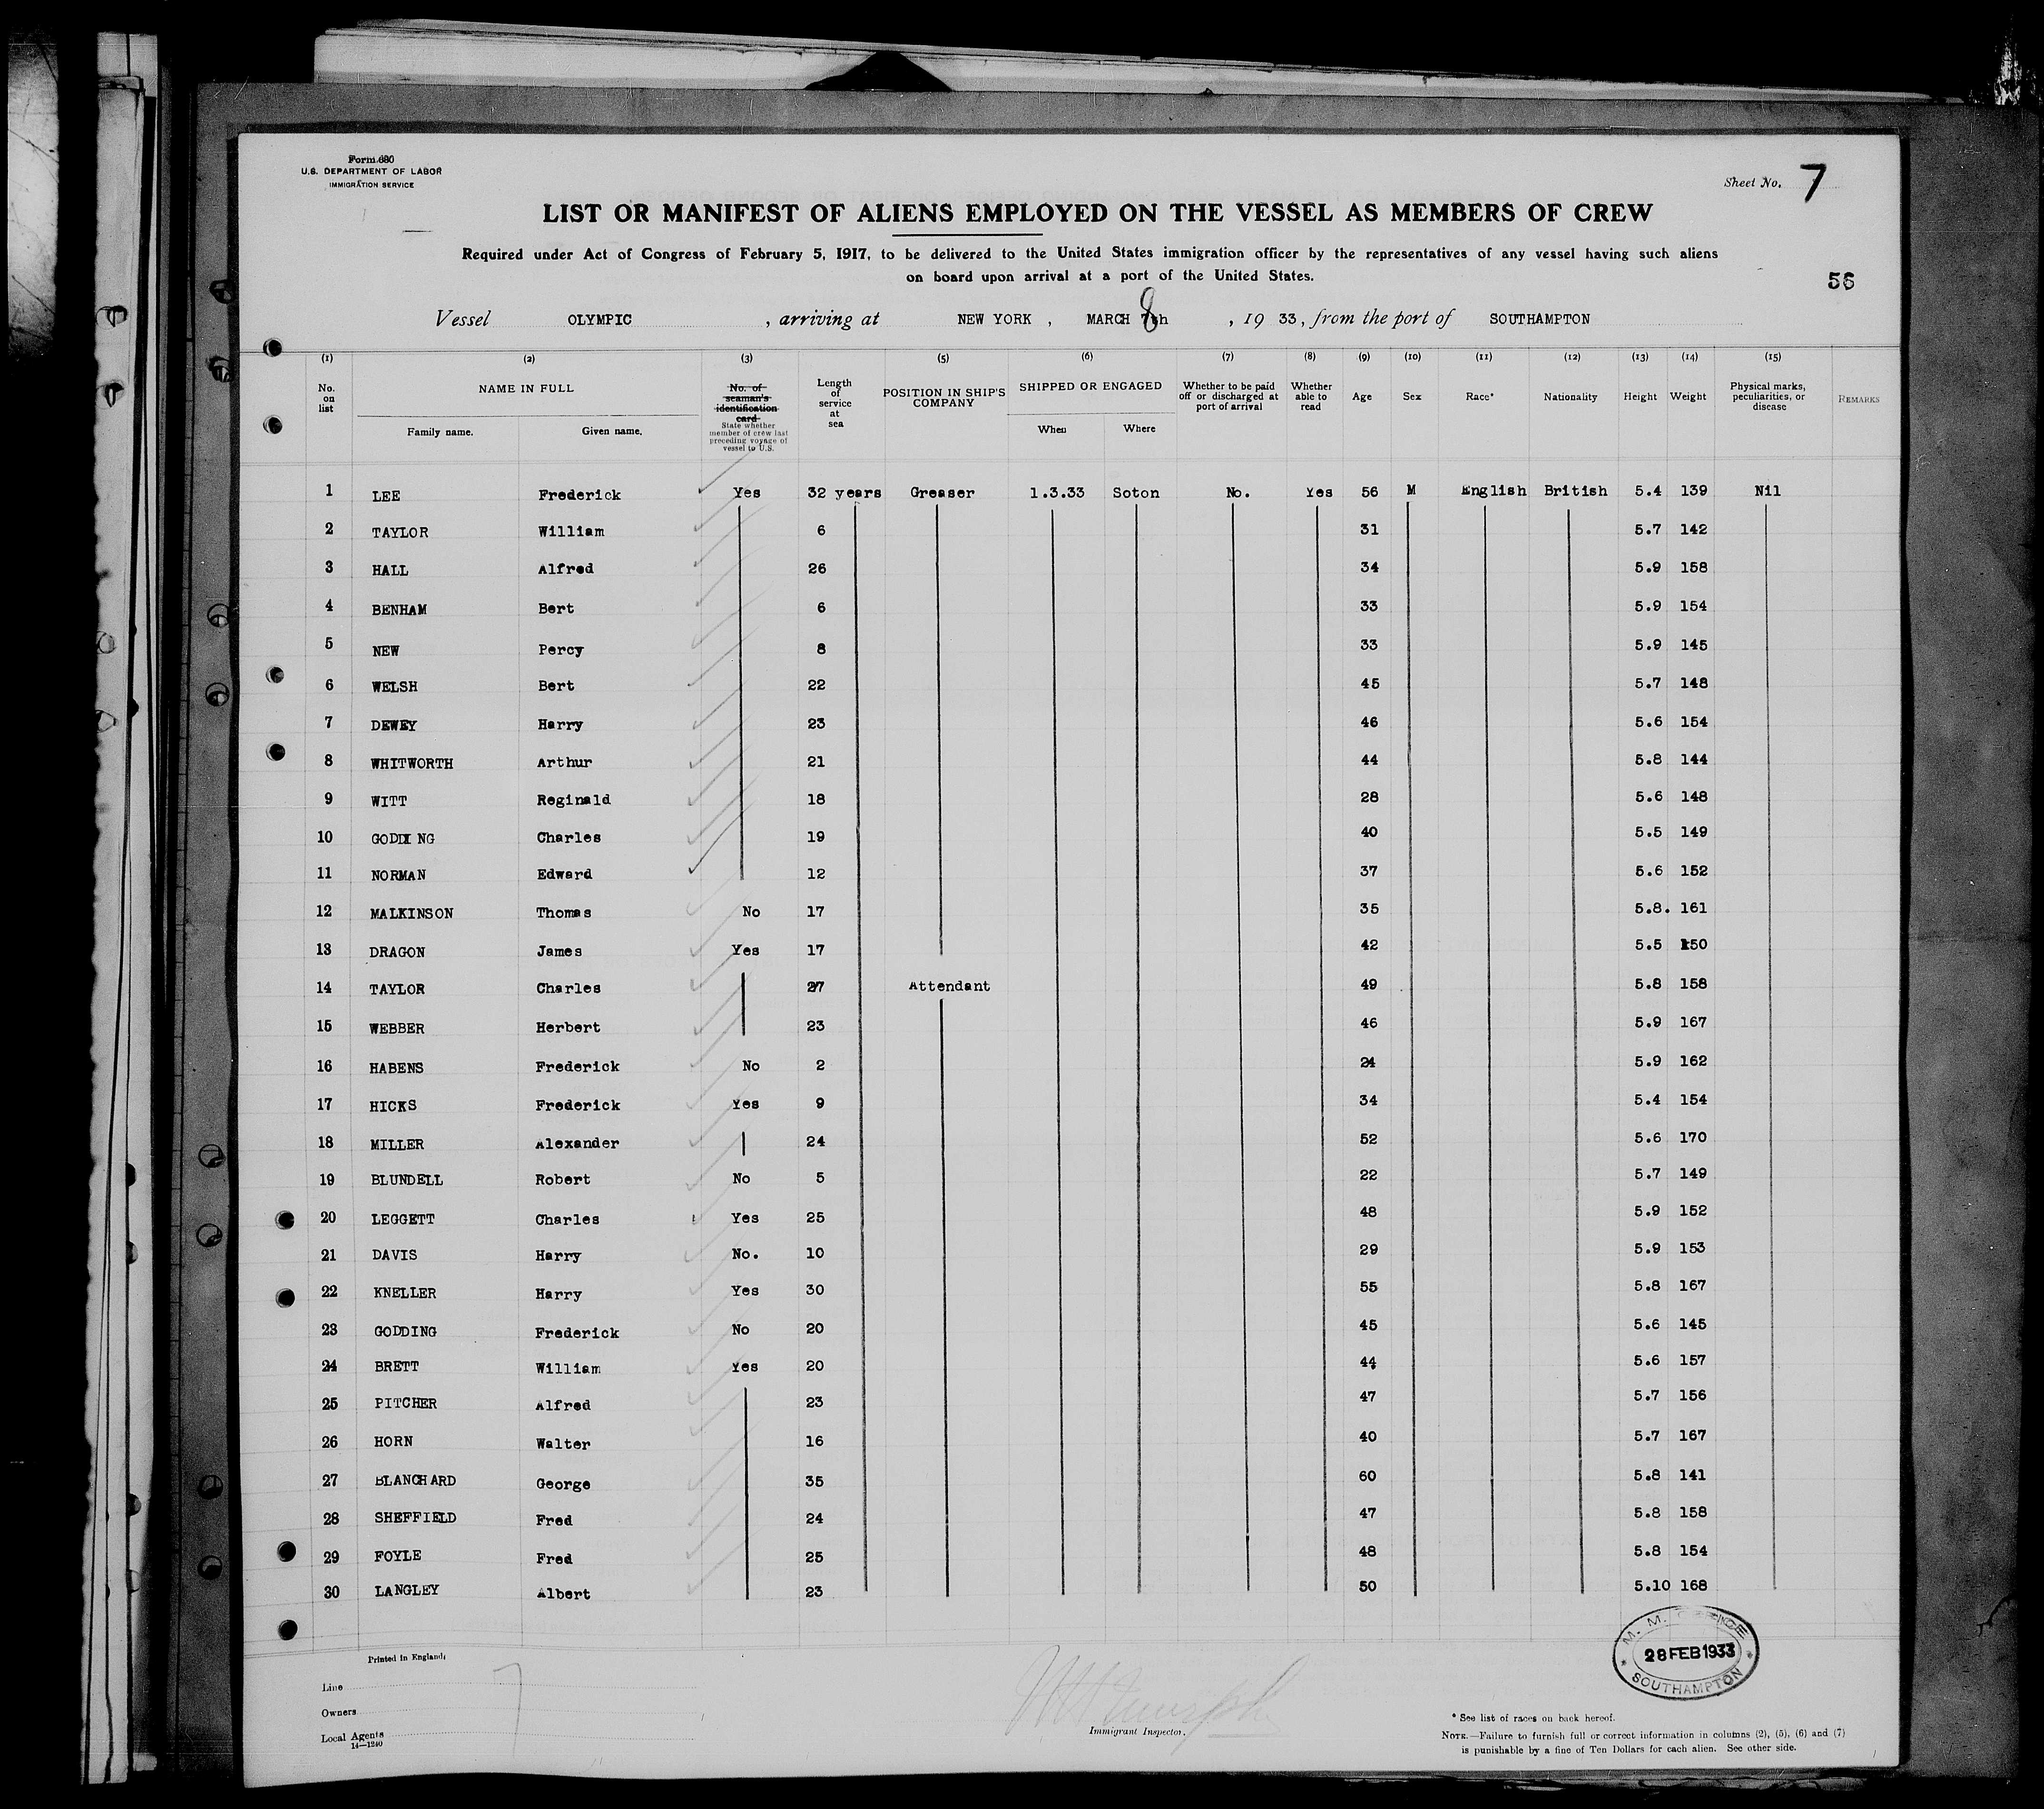 Form 680
U.S. DEPARTMENT OF LABOR
IMMIGRATION SERVICE
Sheet No. 7
LIST OR MANIFEST OF ALIENS EMPLOYED ON THE VESSEL AS MEMBERS OF CREW
Required under Act of Congress of February 5, 1917, to be delivered to the United States immigration officer by the representatives of any vessel having such aliens
on board upon arrival at a port of the United States.
56
Vessel OLYMPIC, arriving at NEW YORK, MARCH 8, 19 33, from the port of SOUTHAMPTON
(1) (2) (3) (5) (6) (7) (8) (9) (10) (11) (12) (13) (14) (15)
No. on list NAME IN FULL Family name. Given name. No. of seaman's identification card State whether member of crew last preceding voyage of vessel to U.S. Length of service at sea POSITION IN SHIP'S COMPANY SHIPPED OR ENGAGED When Where Whether to be paid off or discharged at port of arrival Whether able to read Age Sex Race* Nationality Height Weight Physical marks, peculiarities, or disease REMARKS
1 LEE Frederick Yes 32 years Greaser 1.3.33 Soton No. Yes 56 M English British 5.4 139 Nil
2 TAYLOR William 6 31 5.7 142
3 HALL Alfred 26 34 5.9 158
4 BENHAM Bert 6 33 5.9 154
5 NEW Percy 8 33 5.9 145
6 WELSH Bert 22 45 5.7 148
7 DEWEY Harry 23 46 5.6 154
8 WHITWORTH Arthur 21 44 5.8 144
9 WITT Reginald 18 28 5.6 148
10 GODDING Charles 19 40 5.5 149
11 NORMAN Edward 12 37 5.6 152
12 MALKINSON Thomas No 17 35 5.8. 161
13 DRAGON James Yes 17 42 5.5 150
14 TAYLOR Charles 27 Attendant 49 5.8 158
15 WEBBER Herbert 23 46 5.9 167
16 HABENS Frederick No 2 24 5.9 162
17 HICKS Frederick Yes 9 34 5.4 154
18 MILLER Alexander 24 52 5.6 170
19 BLUNDELL Robert No 5 22 5.7 149
20 LEGGETT Charles Yes 25 48 5.9 152
21 DAVIS Harry No. 10 29 5.9 153
22 KNELLER Harry Yes 30 55 5.8 167
23 GODDING Frederick No 20 45 5.6 145
24 BRETT William Yes 20 44 5.6 157
25 PITCHER Alfred 23 47 5.7 156
26 HORN Walter 16 40 5.7 167
27 BLANCHARD George 35 60 5.8 141
28 SHEFFIELD Fred 24 47 5.8 158
29 FOYLE Fred 25 48 5.8 154
30 LANGLEY Albert 23 50 5.10 168
M. M. OFFICE
28 FEB 1933
SOUTHAMPTON
Printed in England.
Line
Owners
Local Agents
14—1240
7
Immigrant Inspector.
* See list of races on back hereof.
NOTE.—Failure to furnish full or correct information in columns (2), (5), (6) and (7)
is punishable by a fine of Ten Dollars for each alien. See other side.